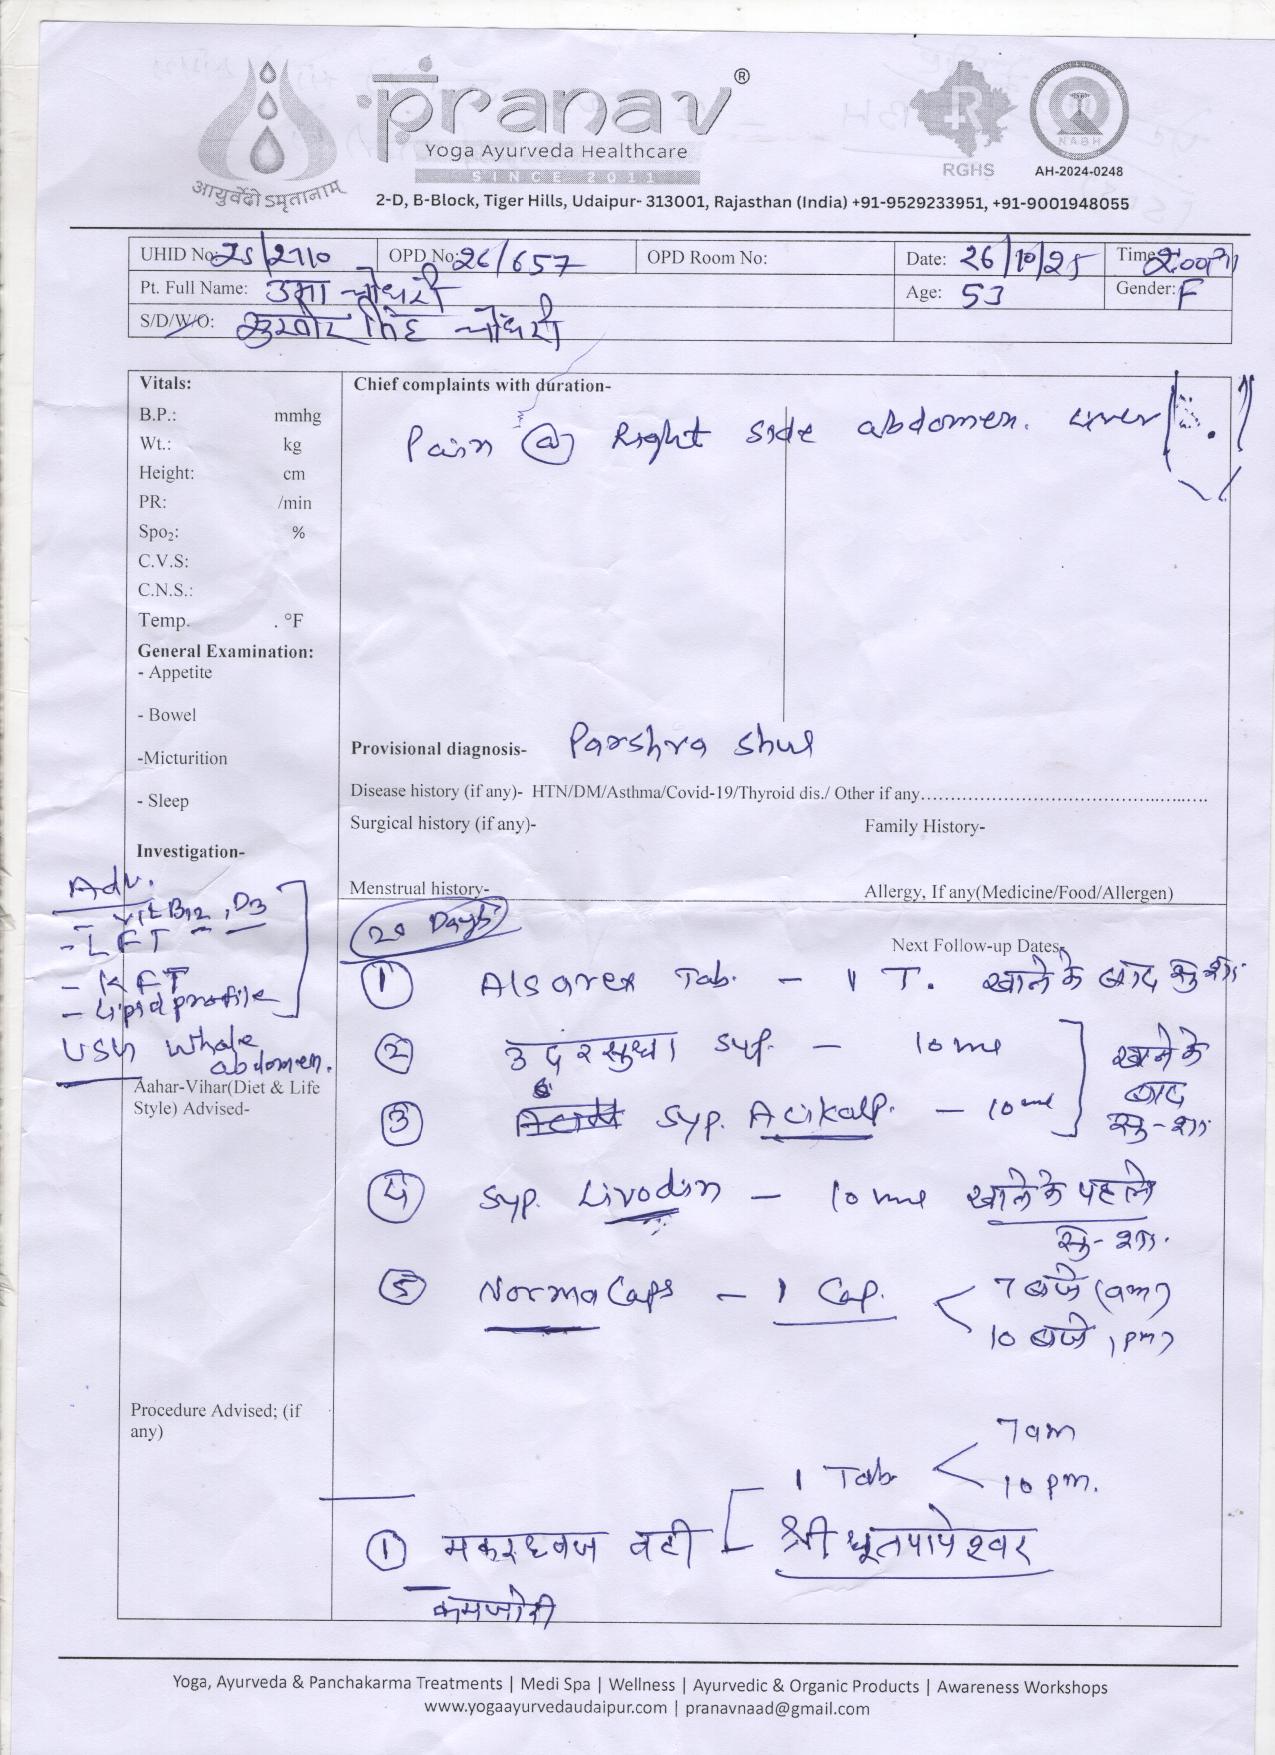 pranav®
Yoga Ayurveda Healthcare
SINCE 2011
आयुर्वेदोऽमृतानाम्
RGHS
NABH
AH-2024-0248
2-D, B-Block, Tiger Hills, Udaipur- 313001, Rajasthan (India) +91-9529233951, +91-9001948055
UHID No: 25/2710 OPD No: 26/657 OPD Room No: Date: 26/10/25 Time: 2:00
Pt. Full Name: उमा चौधरी Age: 53 Gender: F
S/D/W/O: सिंह चौधरी
Vitals:
B.P.: mmhg
Wt.: kg
Height: cm
PR: /min
Spo2: %
C.V.S:
C.N.S.:
Temp. . °F
General Examination:
- Appetite
- Bowel
-Micturition
- Sleep
Investigation-
Adv.
- Vit B12, D3
- LFT
- KFT
- Lipid profile
USG Whole
abdomen.
Aahar-Vihar(Diet & Life
Style) Advised-
Procedure Advised; (if
any)
Chief complaints with duration-
Pain @ Right side abdomen. Liver
Provisional diagnosis- Parshva Shul
Disease history (if any)- HTN/DM/Asthma/Covid-19/Thyroid dis./ Other if any……………………………………
Surgical history (if any)- Family History-
Menstrual history- Allergy, If any(Medicine/Food/Allergen)
20 Days
Next Follow-up Dates-
1 Alsarex Tab. - 1 T. खाने के बाद सु-शा.
2 उदरसुधा Syp. - 10 ml
3 Syp. Acikalp. - 10 ml
खाने के
बाद
सु-शा.
4 Syp. Livodin - 10 ml खाने के पहले
सु-शा.
5 Norma Caps - 1 Cap. 7 बजे (am)
10 बजे (pm)
1 Tab. 7 am
10 pm.
1 मकरध्वज वटी [ श्री धूतपापेश्वर
कमजोरी
Yoga, Ayurveda & Panchakarma Treatments | Medi Spa | Wellness | Ayurvedic & Organic Products | Awareness Workshops
www.yogaayurvedaudaipur.com | pranavnaad@gmail.com